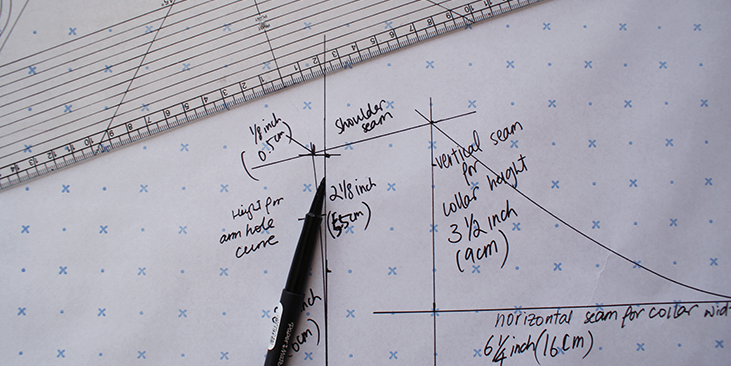 1/8 inch
(0.5cm)
shoulder
seam
vertical seam
for
collar height
3 1/2 inch
(9cm)
2 1/8 inch
(5.5cm)
Height for
arm hole
curve
horizontal seam for collar wid
6 1/4 inch (16cm)